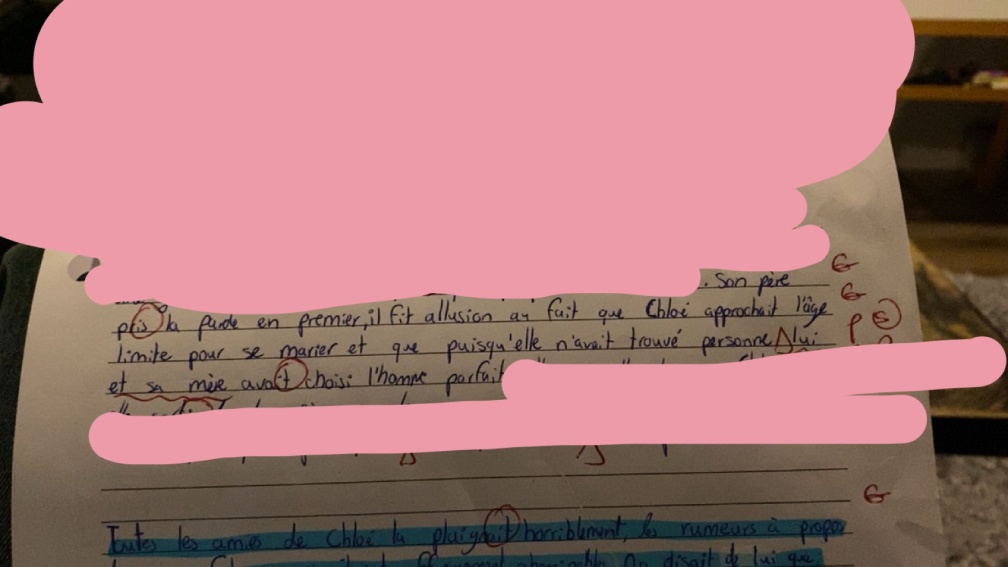 . Son père G
pris la parole en premier, il fit allusion au fait que Chloé approchait l'âge G
limite pour se marier et que puisqu'elle n'avait trouvé personne lui P S
et sa mère avait choisi l'homme parfait
G
Toutes les amies de Chloé la plaignait horriblement, les rumeurs à propos
On disait de lui que